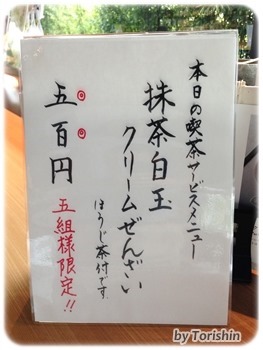 本日の喫茶サービスメニュー
抹茶白玉
クリームぜんざい
ほうじ茶付です。
五百円
五組様限定!!
by Torishin